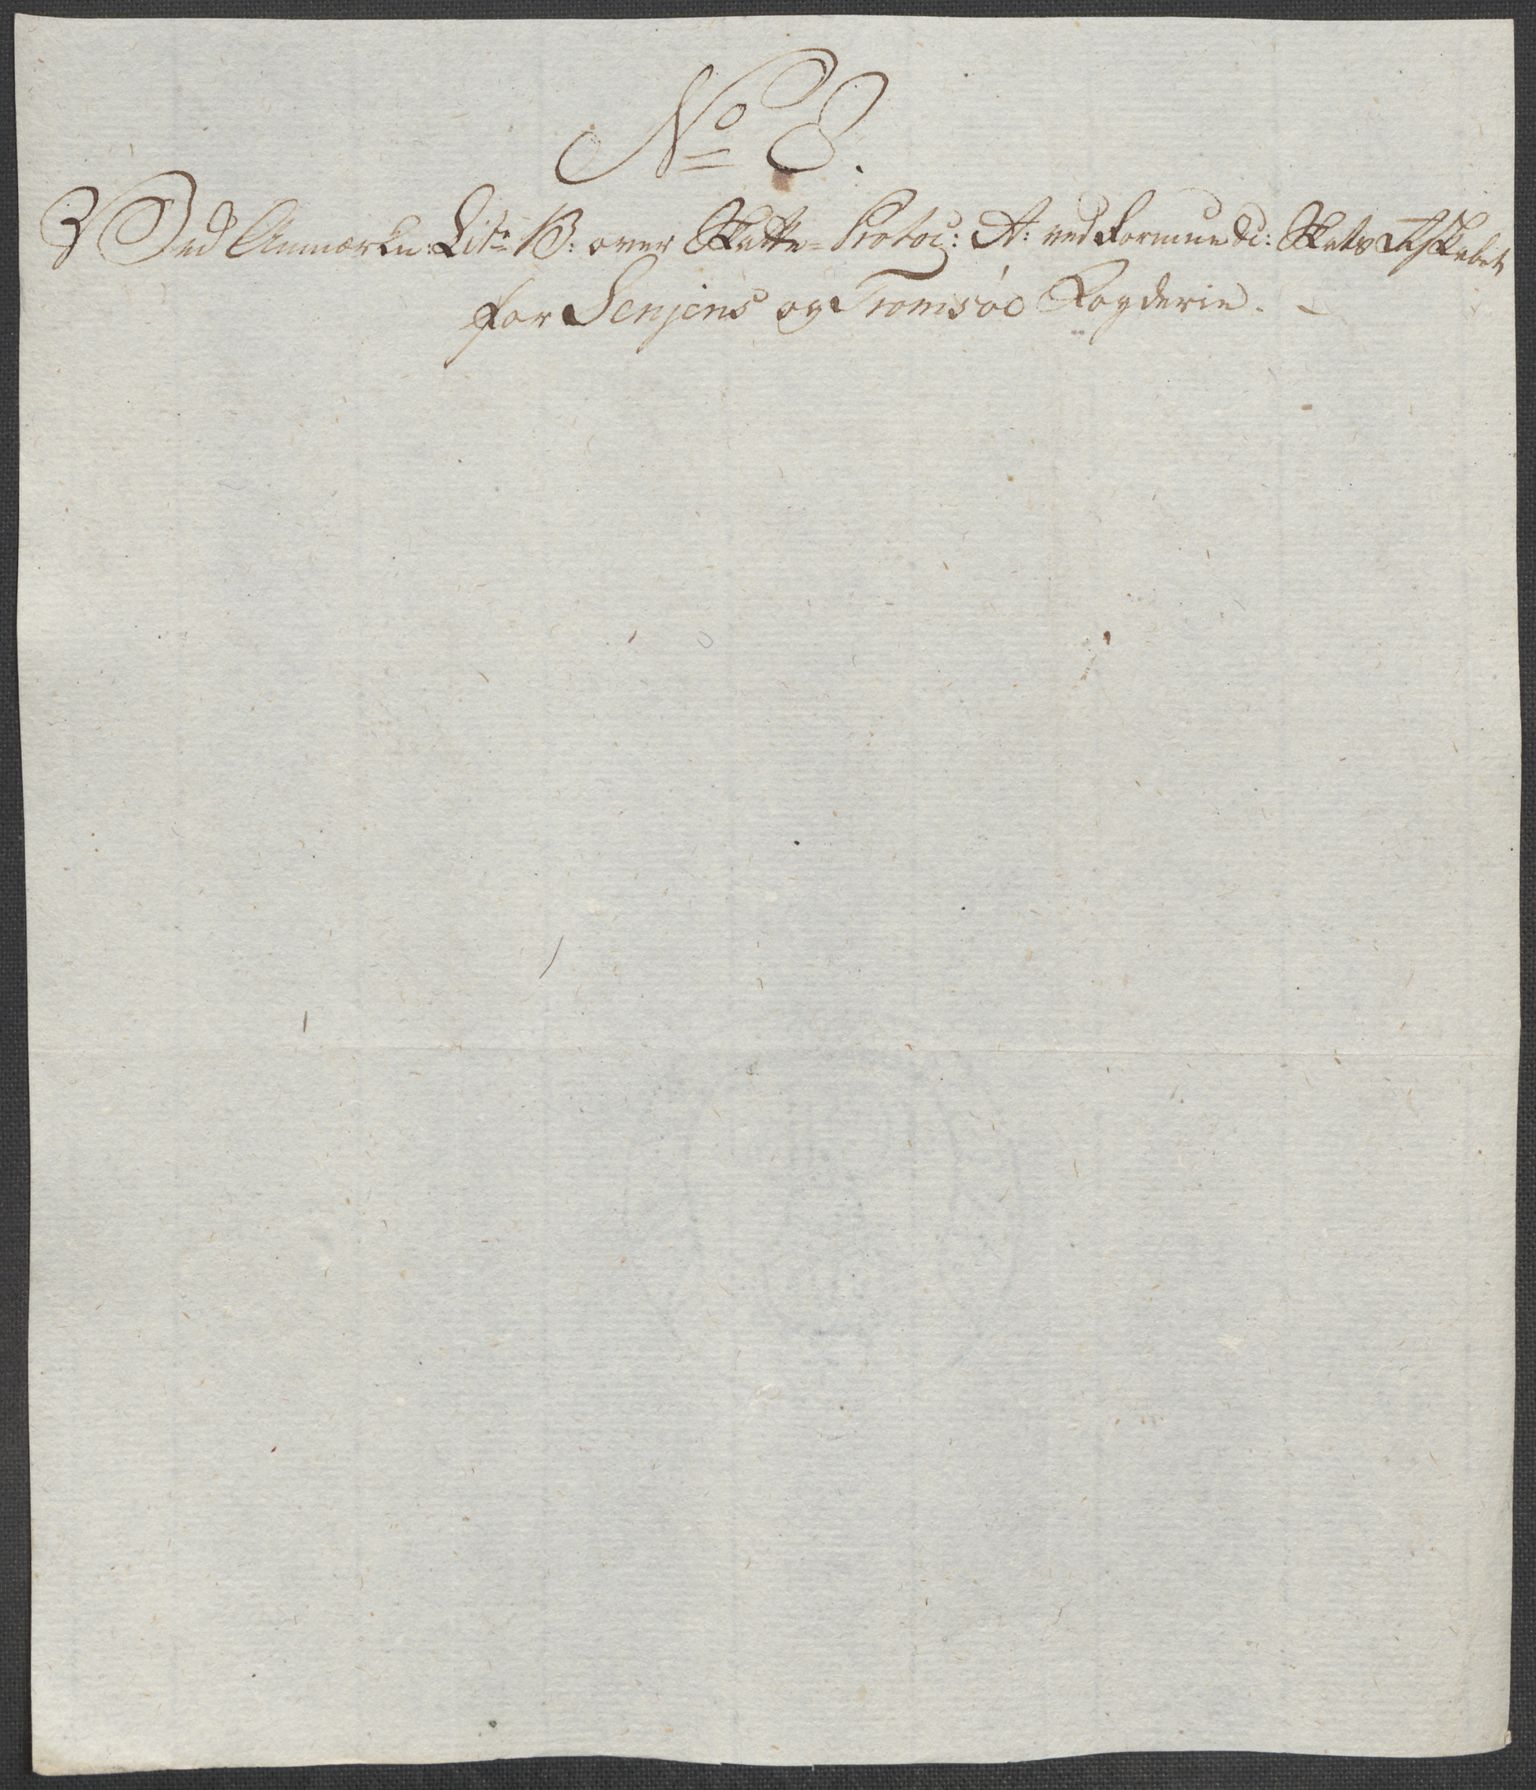 No 8.
Ved Anmærkn: Litr B: over Skatte-Protoc: A: ved Formue &c: Skatts
for Senjens og Tromsøe Fogderie.